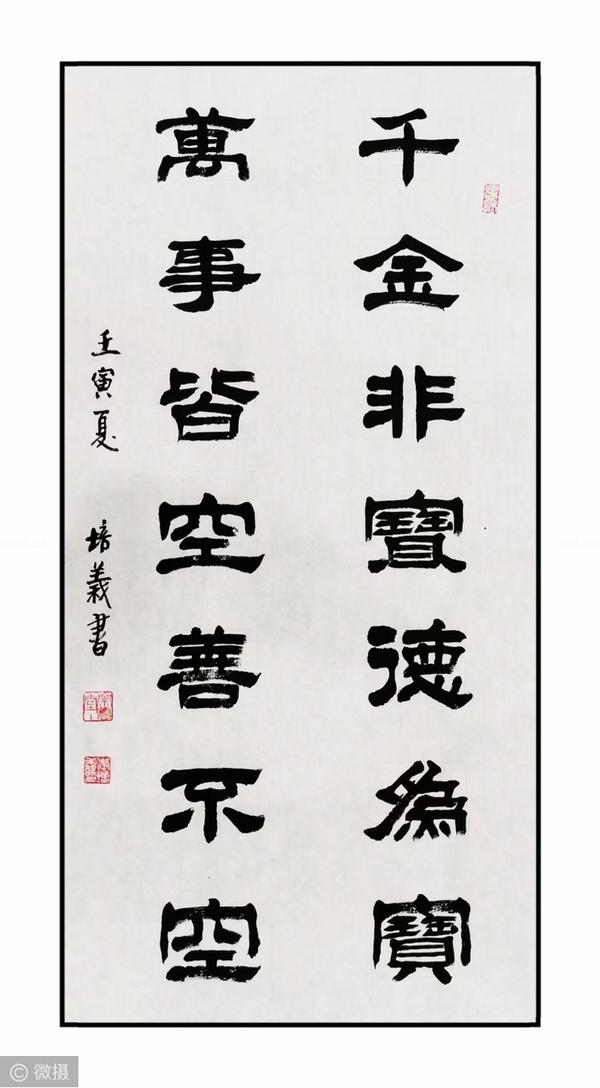 千金非寶德為寶
萬事皆空善不空
壬寅夏 培義書
© 微摄